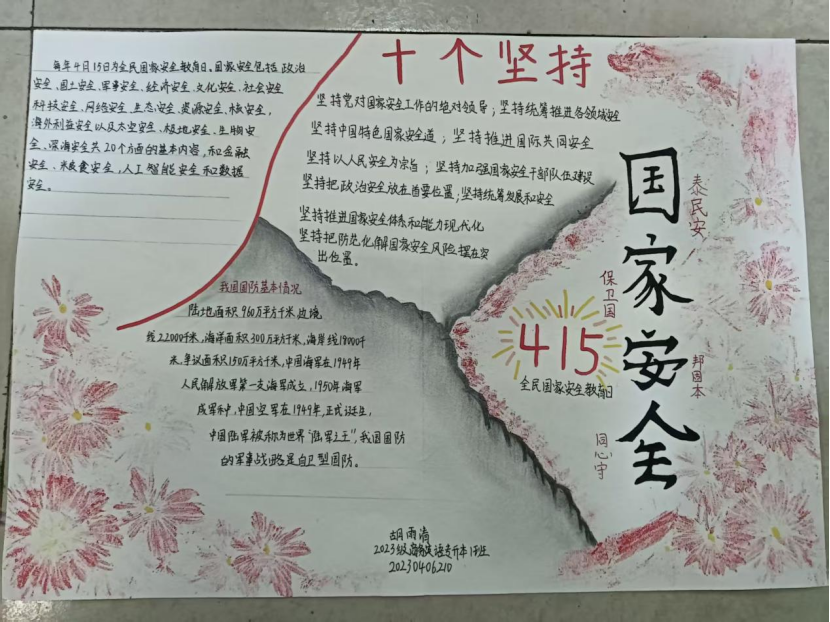 每年4月15日为全民国家安全教育日。国家安全包括政治
安全、国土安全、军事安全、经济安全、文化安全、社会安全
科技安全、网络安全、生态安全、资源安全、核安全,
海外利益安全以及太空安全、极地安全、生物安
全、深海安全共20个方面的基本内容,和金融
安全、粮食安全,人工智能安全和数据
安全。
十个坚持
坚持党对国家安全工作的绝对领导;坚持统筹推进各领域安全
坚持中国特色国家安全道;坚持推进国际共同安全
坚持以人民安全为宗旨;坚持加强国家安全干部队伍建设
坚持把政治安全放在首要位置;坚持统筹发展和安全
坚持推进国家安全体系和能力现代化
坚持把防范化解国家安全风险摆在突
出位置。
我国国防基本情况
陆地面积960万平方千米,边境
线22000千米,海洋面积300万平方千米,海岸线18000千
米,争议面积150万平方千米,中国海军在1949年
人民解放军第一支海军成立,1950年海军
成军种,中国空军在1949年正式诞生,
中国陆军被称为世界“陆军之王”,我国国防
的军事战略是自卫型国防。
国家安全
泰民安
保卫国
邦固本
同心守
415
全民国家安全教育日
胡雨
2023级商务英语专升本1班
20230406210